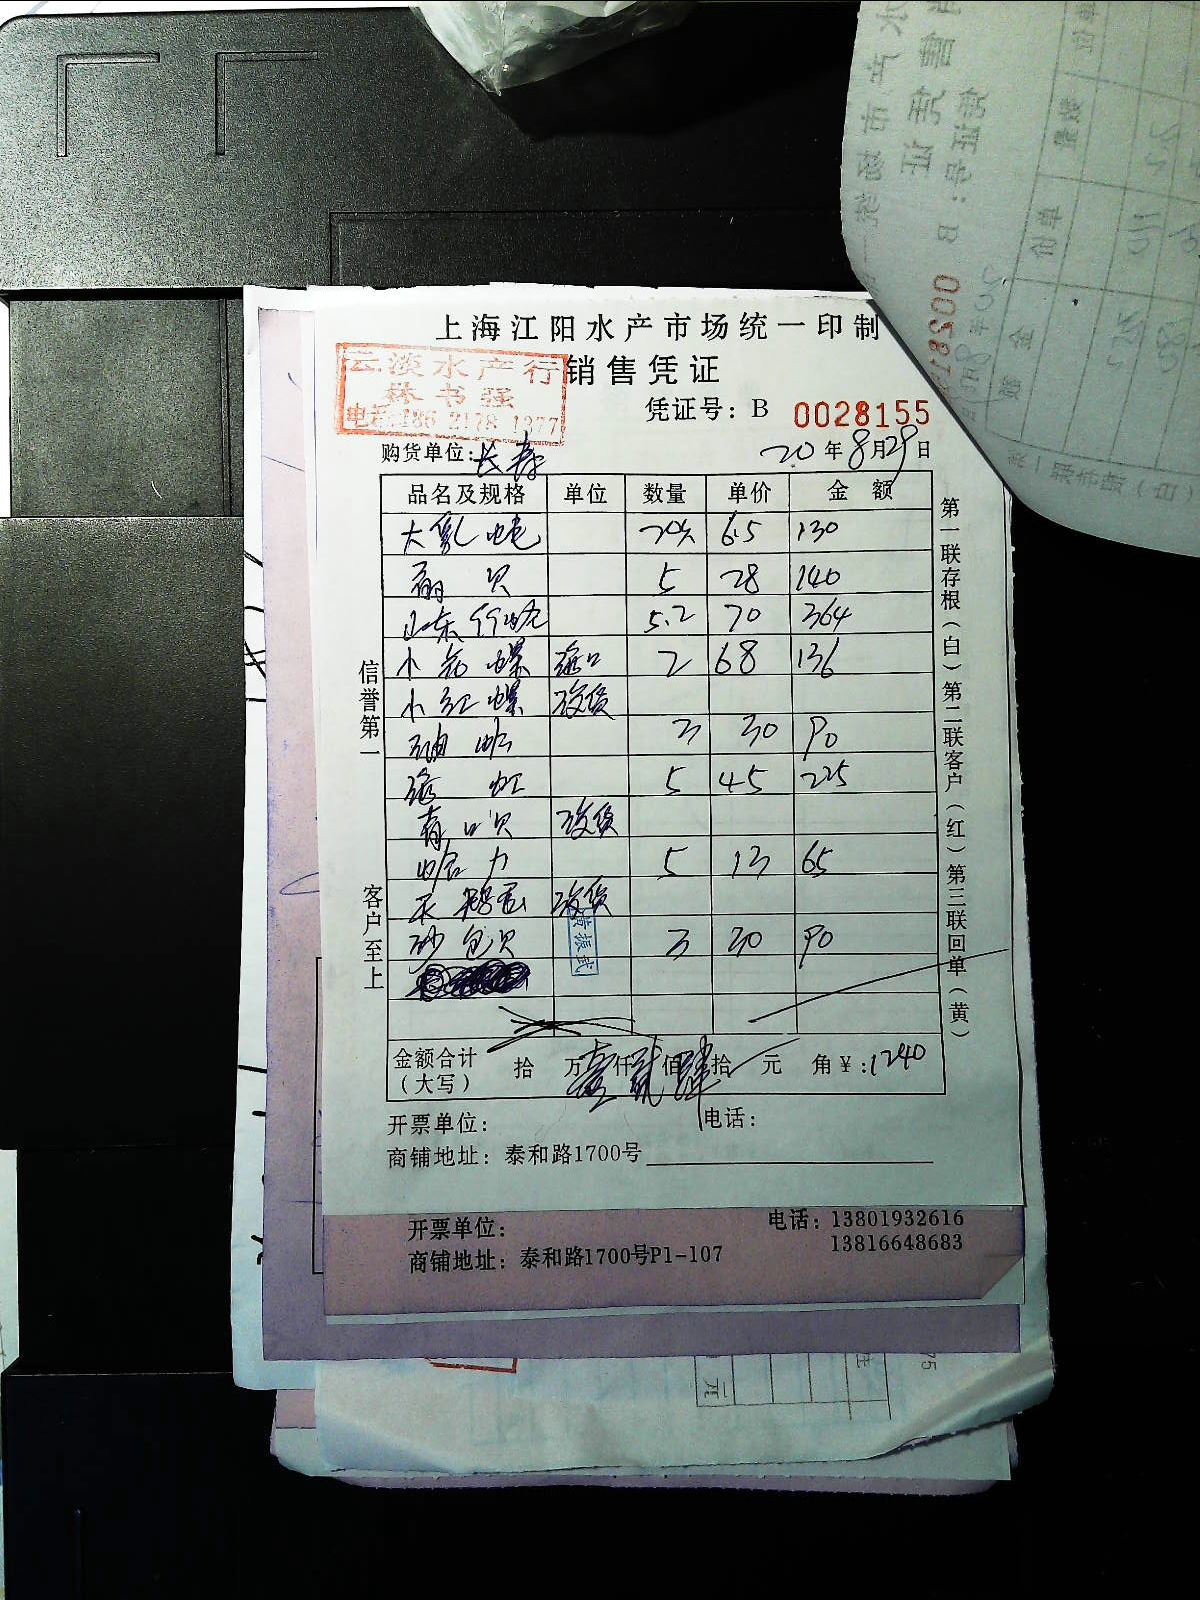 上海江阳水产市场统一印制
销售凭证
云淡水产行
林书强
电话:186 2178 1377
凭证号: B 0028155
购货单位: 长寿
20年8月29日
品名及规格 单位 数量 单价 金额
大 6.5 130
贝 5 28 140
山东竹蛏 5.2 70 364
小花螺 海口 2 68 136
小红螺 没货
油蛤 3 30 90
海虹 5 45 225
青口贝 没货
哈力 5 13 65
天鹅蛋 没货
砂包贝 3 30 90
黄振武
金额合计(大写) 拾 万壹仟贰佰肆拾 元 角 ¥:1240
开票单位: 电话:
商铺地址: 泰和路1700号
信誉第一
客户至上
第一联存根(白)第二联客户(红)第三联回单(黄)
开票单位: 电话: 13801932616
13816648683
商铺地址: 泰和路1700号P1-107